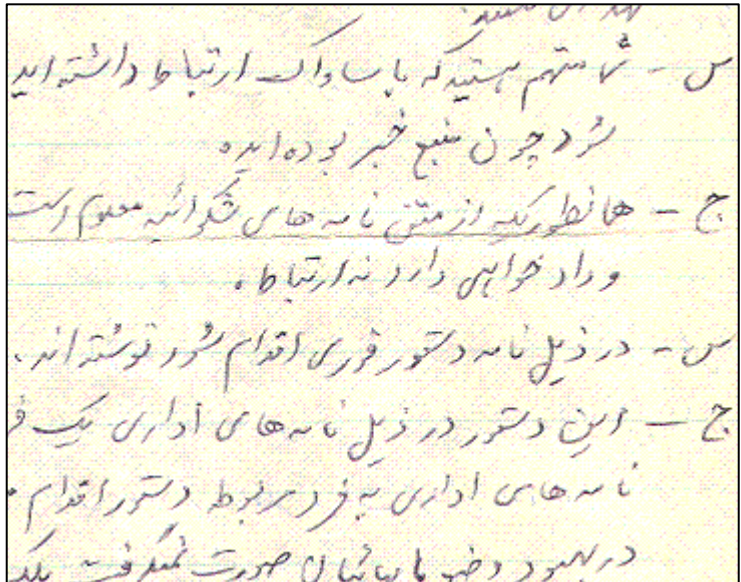 س - شما متهم هستید که با ساواک ارتباط داشته اید
شود چون منبع خبر بوده اید.
ج - همانطوریکه از متن نامه های شکوائیه معلوم است
و داد خواهی دارد نه ارتباط.
س - در ذیل نامه دستور فوری اقدام شود نوشته اند.
ج - این دستور در ذیل نامه های اداری یک
نامه های اداری به فرد مربوطه دستور اقدام
در بهبود وضع صورت نمیگرفت بلکه